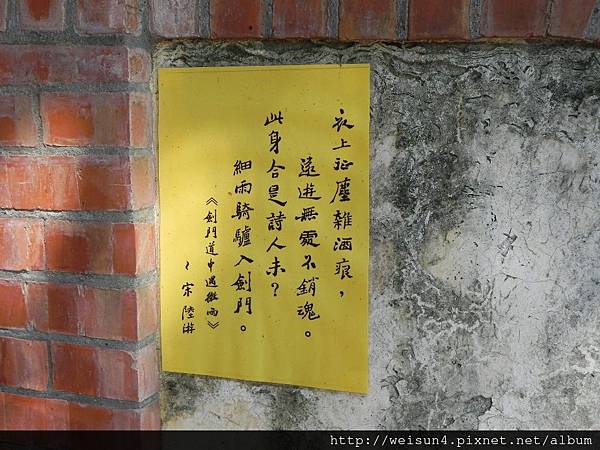 衣上征塵雜酒痕，
遠遊無處不銷魂。
此身合是詩人未？
細雨騎驢入劍門。
《劍門道中遇微雨》
~宋 陸游
http://weisun4.pixnet.net/album